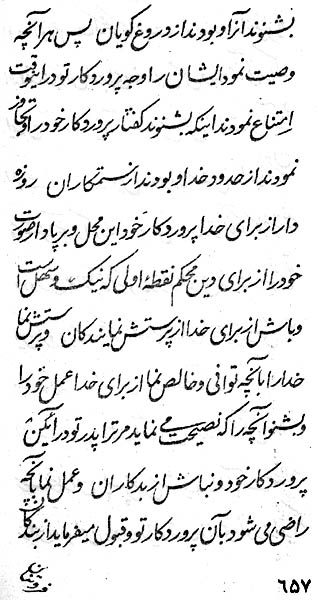 بشنوند آنرا و بودند از دروغ گویان پس هر آنچه
وصیت نمود ایشان را وجه پروردگار تو در اینوقت
امتناع نمودند اینکه بشنوند گفتار پروردگار خود را و تجاوز
نمودند از حدود خدا و بودند از ستمکاران روزه
دار از برای خدا پروردگار خود این محل و برپا دار صلوت
خود را از برای دین محکم نقطهٔ اولی که نیک و سهل است
و باش از برای خدا از پرستش نمایندگان و پرستش نما
خدا را بآنچه توانی و خالص نما از برای خدا عمل خود را
و بشنو آنچه را که نصیحت می نماید مر ترا پدر تو در آئین
پروردگار خود و نباش از بدکاران و عمل نما بآنچه
راضی می شود بآن پروردگار تو و قبول میفرماید از بندگان
۶۵۷